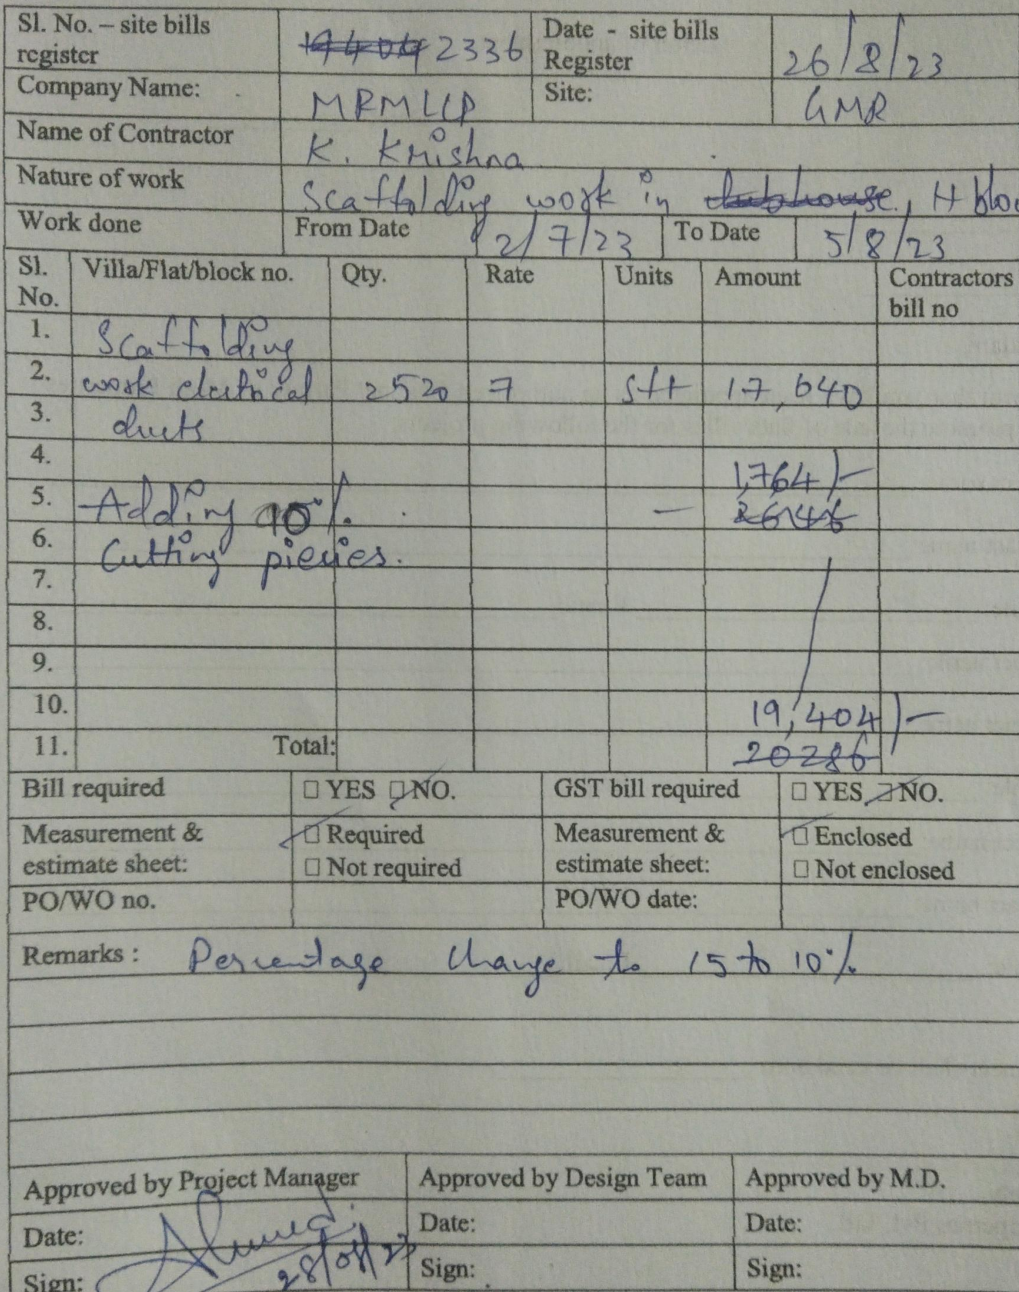 Sl. No. – site bills register 19404 2336 Date - site bills Register 26/8/23
Company Name: MRMLLP Site: GMR
Name of Contractor K. Krishna
Nature of work Scaffolding work in clubhouse, H bloc
Work done From Date 2/7/23 To Date 5/8/23
Sl. No. Villa/Flat/block no. Qty. Rate Units Amount Contractors bill no
1. Scaffolding
2. work electrical 2520 7 sft 17,640
3. ducts
4. 1,764/-
5. Adding 10%. - 2646
6. Cutting pieces.
7.
8.
9.
10. 19,404/-
11. Total: 20286
Bill required □ YES □ NO. GST bill required □ YES □ NO.
Measurement & estimate sheet: □ Required □ Not required Measurement & estimate sheet: □ Enclosed □ Not enclosed
PO/WO no. PO/WO date:
Remarks : Percentage change to 15 to 10%
Approved by Project Manager Approved by Design Team Approved by M.D.
Date: 28/08/23 Date: Date:
Sign: Sign: Sign: